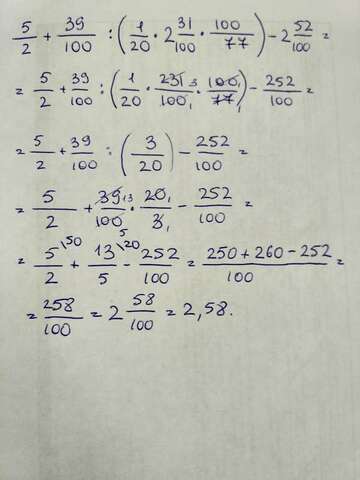 5/2 + 39/100 : (1/20 · 2 31/100 · 100/77) - 2 52/100 =
= 5/2 + 39/100 : (1/20 · 231 3/100 1 · 100 1/77 1) - 252/100 =
= 5/2 + 39/100 : (3/20) - 252/100 =
= 5/2 + 39 13/100 5 · 20 1/3 1 - 252/100 =
= 5\50/2 + 13\20/5 - 252/100 = 250 + 260 - 252/100 =
= 258/100 = 2 58/100 = 2,58.